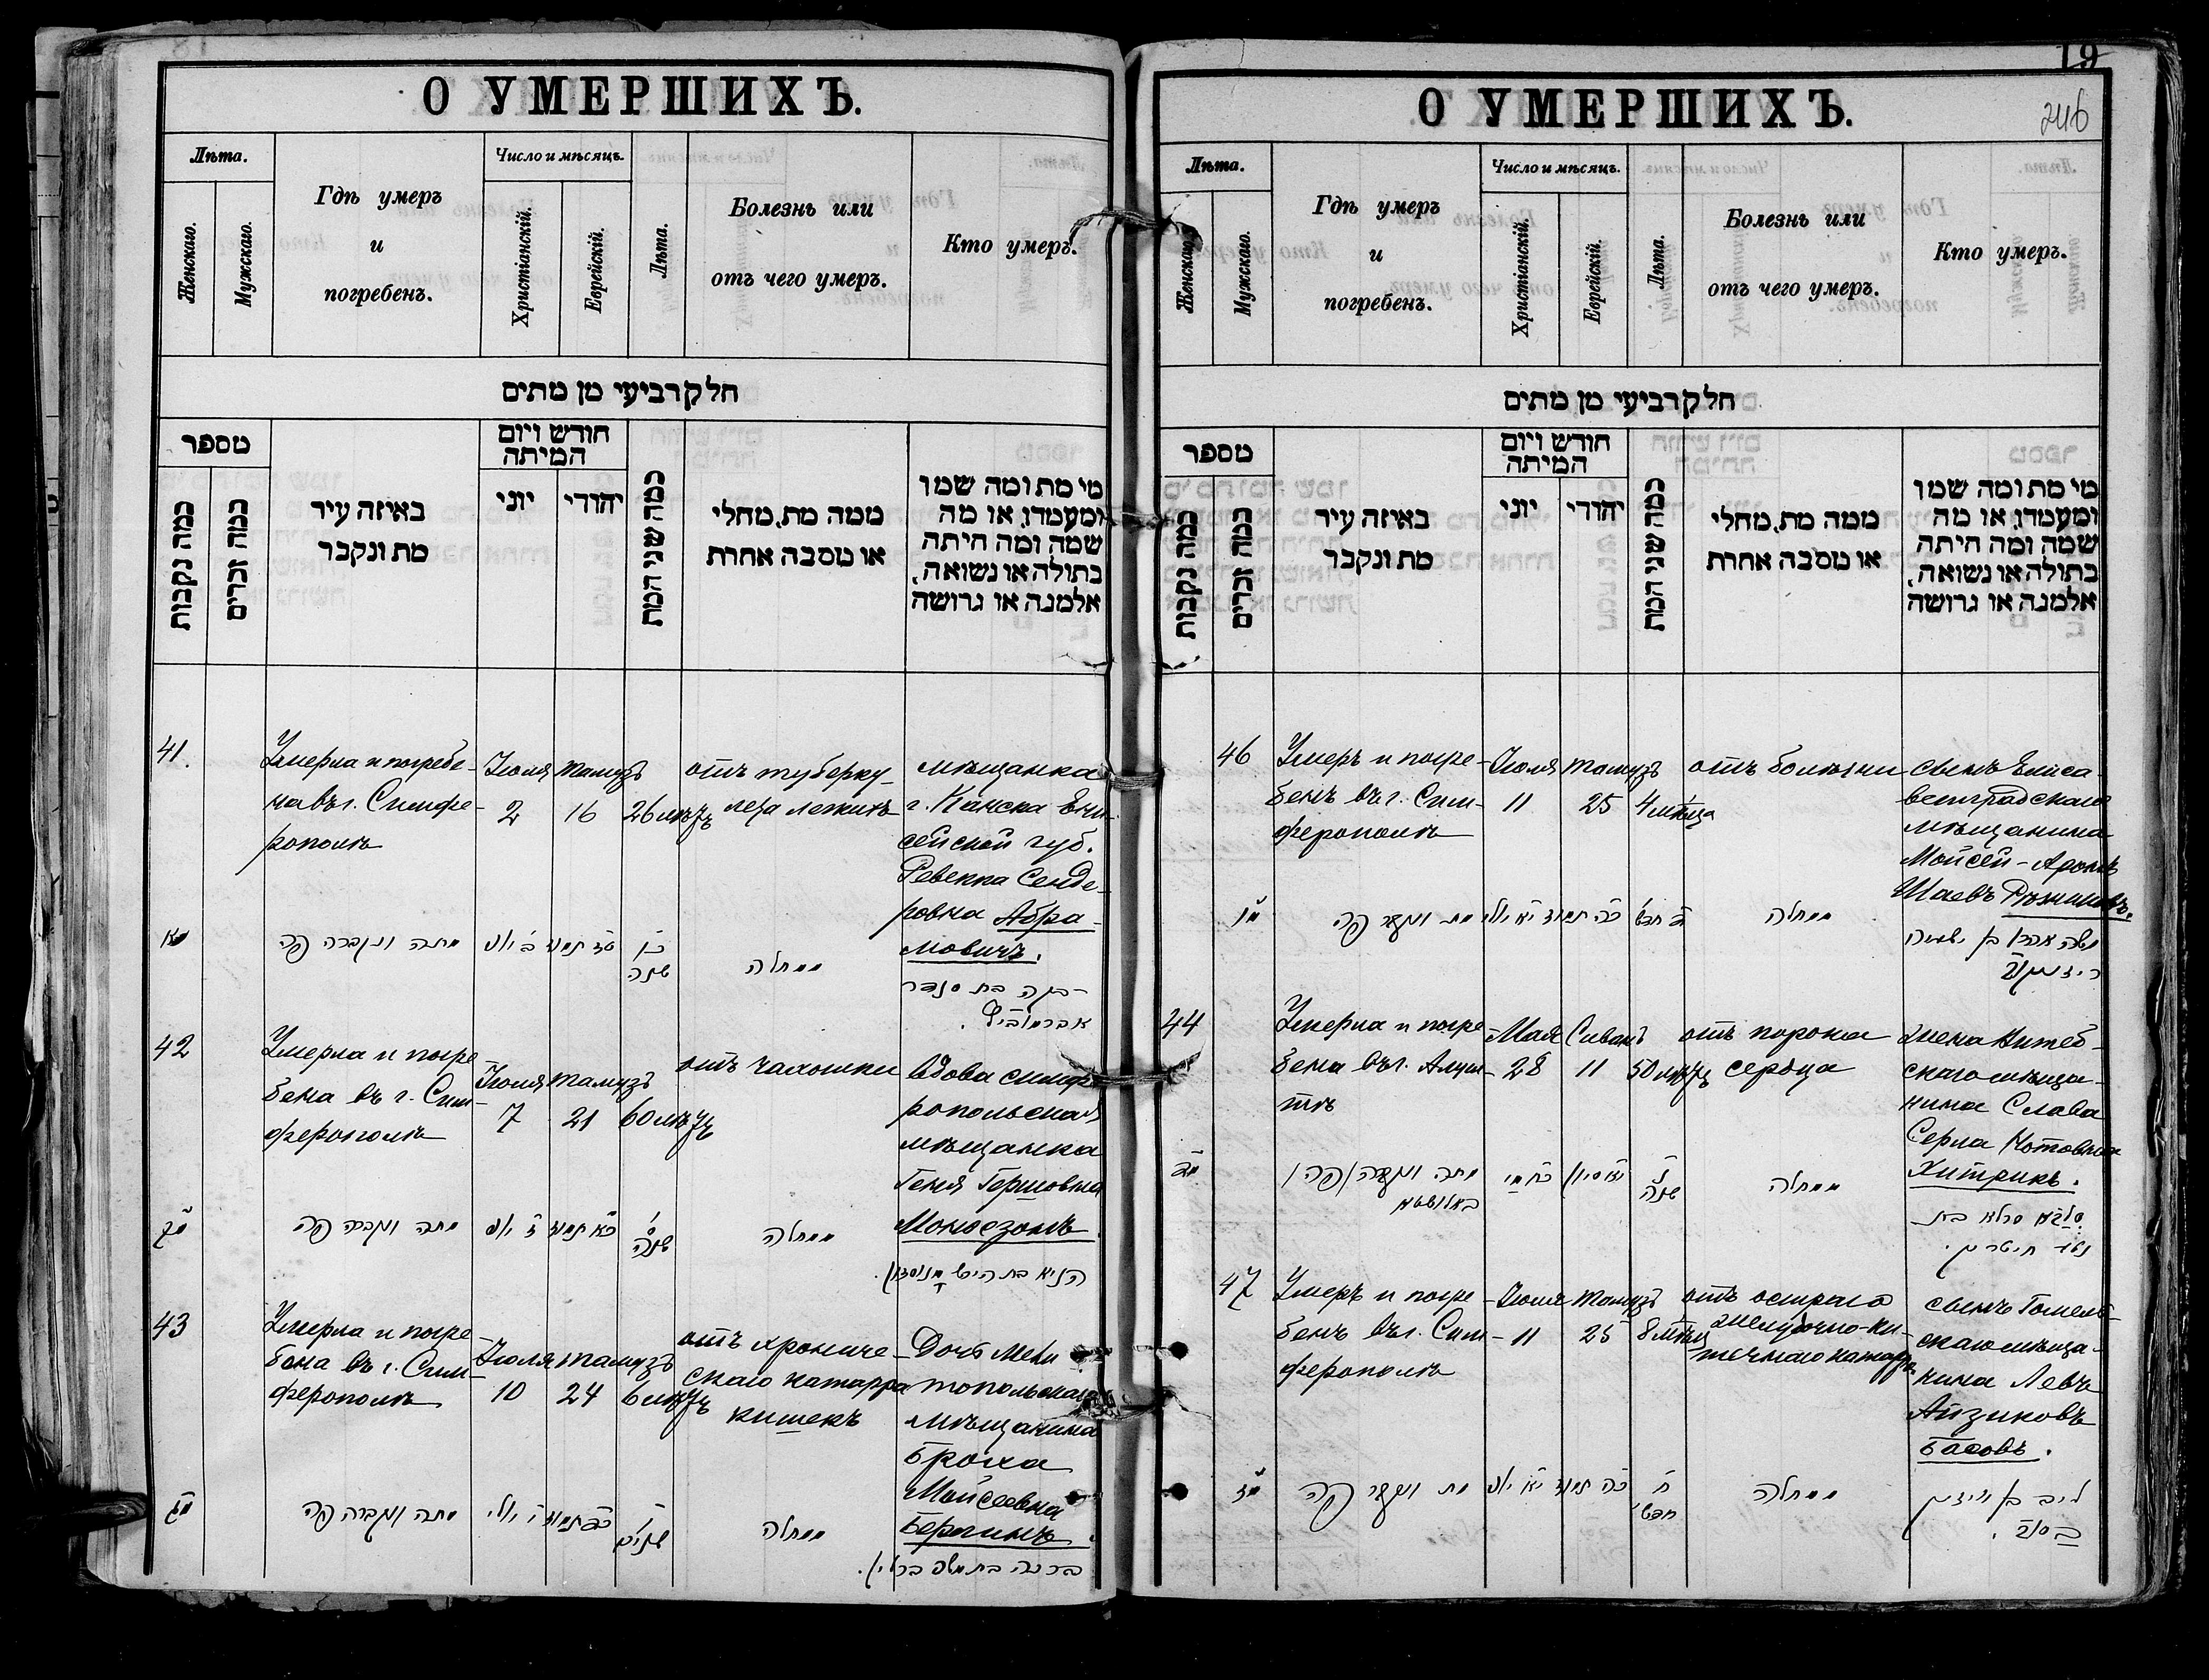 О УМЕРШИХЪ.
Лѣта.
Женскаго.
Мужскаго.
Гдѣ умеръ
и
погребенъ.
Число и мѣсяцъ.
Христіанскій.
Еврейскій.
Лѣта.
Болезнь или
отъ чего умеръ.
Кто умеръ.
חלק רביעי מן מתים
מספר
כמה נקבות
כמה זכרים
באיזה עיר
מת ונקבר
חודש ויום
המיתה
יוני
יהודי
כמה שני המת
ממה מת, מחלי
או מסבה אחרת
מי מת ומה שמו
ומעמדו, או מה
שמה ומה היתה
בתולה או נשואה,
אלמנה או גרושה
41.
Умерла и погребе-
на въ г. Симфе-
рополѣ
Іюля
2
Тамузъ
16
26 лѣтъ
отъ туберку-
леза легкихъ
мѣщанка
г. Канска Ени-
сейской губ.
Ревекка Сенде-
ровна Абра-
мовичъ.
מא
מתה ונקברה פה
ב יולי
טז תמוז
כו
שנה
ממחלה
רבקה בת סנדר
אברמוביץ.
42
Умерла и погре-
бена въ г. Сим-
ферополѣ
Іюля
7
Тамузъ
21
60 лѣтъ
отъ чахотки
вдова симфе-
ропольская
мѣщанка
Геня Гершовна
Моносзонъ.
מב
מתה ונקברה פה
ז יולי
כא תמוז
ס
שנה
ממחלה
העניא בת הירש מנוסזאן.
43
Умерла и погре-
бена въ г. Сим-
ферополѣ
Іюля
10
Тамузъ
24
6 лѣтъ
отъ хрониче-
скаго катарра
кишекъ
Дочь Мели-
топольскаго
мѣщанина
Броха
Мойсеевна
Берлинъ.
מג
מתה ונקברה פה
י יולי
כד תמוז
ו
שנים
ממחלה
ברכה בת משה ברלין.
19
246
О УМЕРШИХЪ.
Лѣта.
Женскаго.
Мужскаго.
Гдѣ умеръ
и
погребенъ.
Число и мѣсяцъ.
Христіанскій.
Еврейскій.
Лѣта.
Болезнь или
отъ чего умеръ.
Кто умеръ.
חלק רביעי מן מתים
מספר
כמה נקבות
כמה זכרים
באיזה עיר
מת ונקבר
חודש ויום
המיתה
יוני
יהודי
כמה שני המת
ממה מת, מחלי
או מסבה אחרת
מי מת ומה שמו
ומעמדו, או מה
שמה ומה היתה
בתולה או נשואה,
אלמנה או גרושה
46
Умеръ и погре-
бенъ въ г. Сим-
ферополѣ
Іюля
11
Тамузъ
25
4 мѣсяца
отъ болѣзни
сынъ Елиса-
ветградскаго
мѣщанина
Мойсей-Аронъ
Шаевъ
מו
מת ונקבר פה
יא יולי
כה תמוז
ד חדש
ממחלה
משה אהרן בן ישעיה
44
Умерла и погре-
бена въ г. Алуш-
тѣ
Мая
28
Сиванъ
11
50 лѣтъ
отъ порока
сердца
жена Витеб-
скаго мѣща-
нина Слава
Серла Нотовна
Хитрикъ.
מד
מתה ונקברה פה
באלושטא
כח מאי
יא סיון
נ
שנה
ממחלה
סלאווא סרלא בת
נטע חיטריק.
47
Умеръ и погре-
бенъ въ г. Сим-
ферополѣ
Іюля
11
Тамузъ
25
8 мѣсяц
отъ остраго
желудочно-ки-
шечнаго катарра
сынъ Гомель-
скаго мѣща-
нина Левъ
Айзиковъ
Басовъ.
מז
מת ונקבר פה
יא יולי
כה תמוז
ח
חדש
ממחלה
ליב בן אייזיק
באסוב.